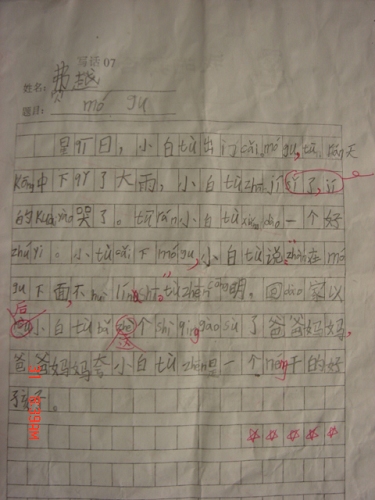 写话07
姓名: 费越
题目: mó gu
星期日,小白tù出门cǎi mó gu, tū rán天
kōng中下起了大雨,小白tù zháojí
的kū了。tū rán小白tù 一个好
zhǔyi。小tù cǎi下mó gu,小白tù说:在mó
gu下面不huì lín shī,tù zhēn cōng明。回dào家以
后小白tù bǎ zhè个shì qing gào su了爸爸妈妈,
爸爸妈妈夸小白tù zhēn是一个néng干的好
孩子。